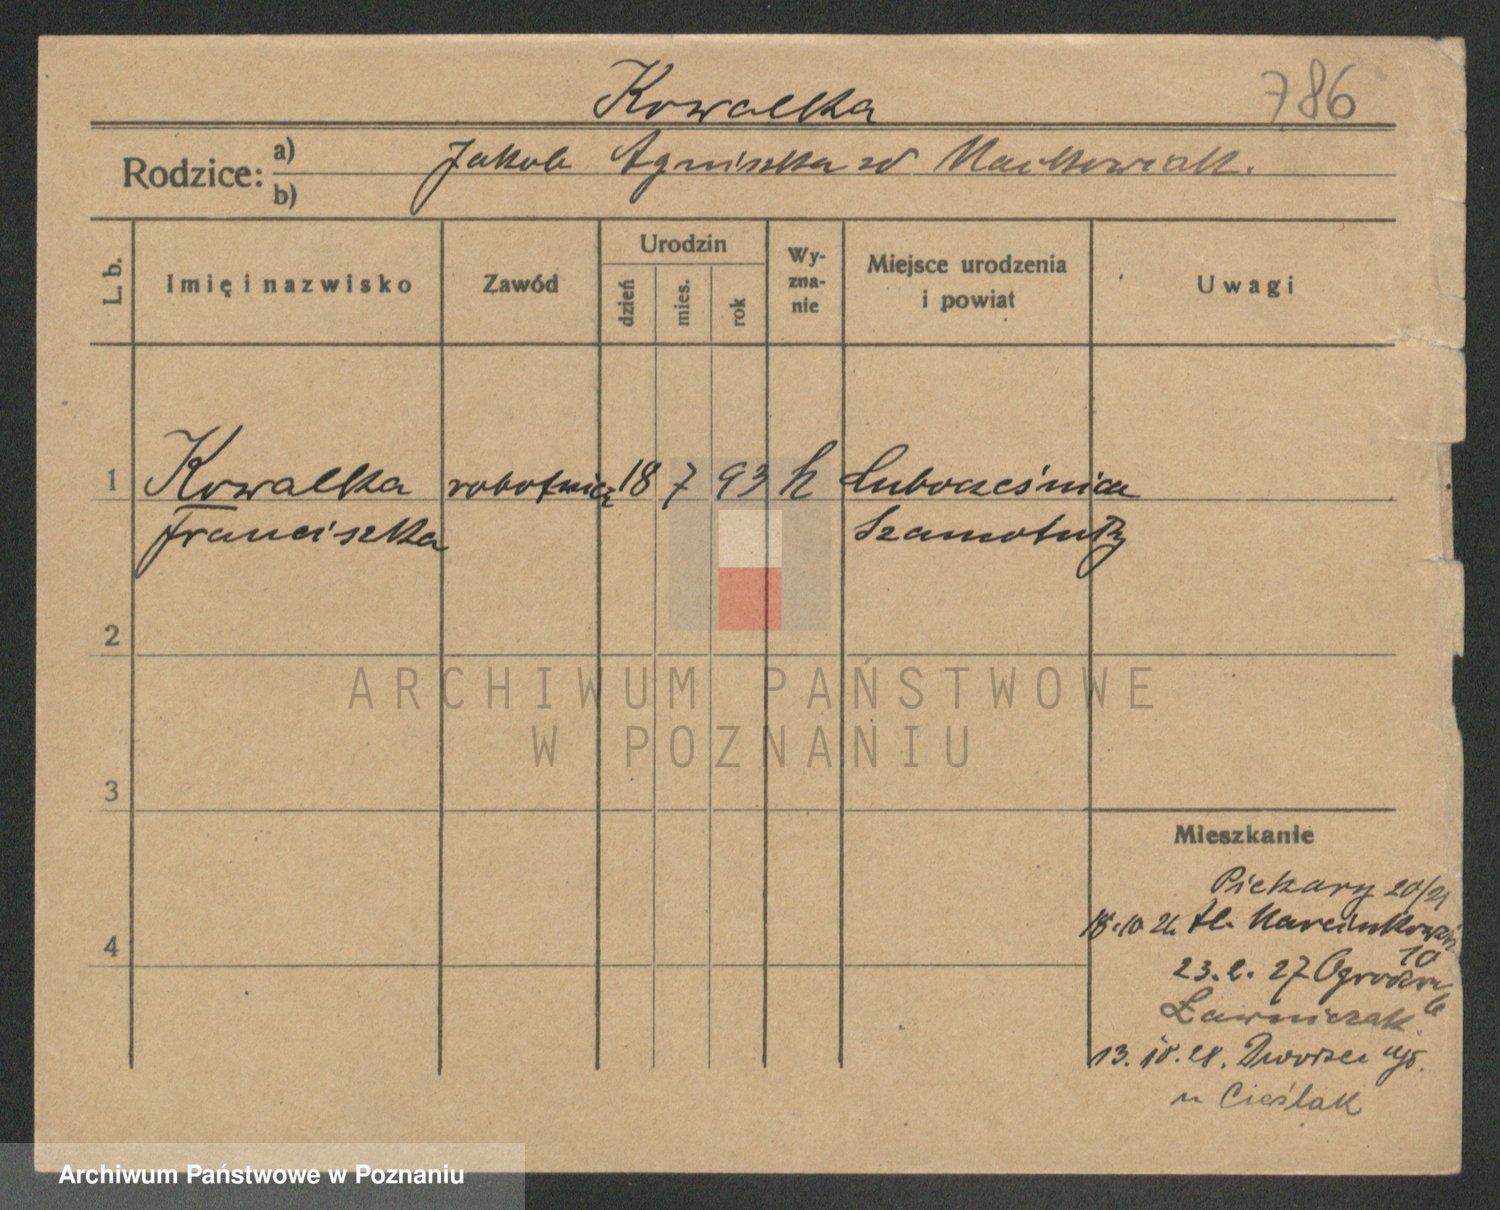 786
Kowalka
Rodzice: a) b)
Jakob Agniszka zd Maćkowiak.
L. b.
Imię i nazwisko
Zawód
Urodzin
dzień
mies.
rok
Wy-
zna-
nie
Miejsce urodzenia
i powiat
Uwagi
1 Kowalka robotnica 18 7 93 k Lubocześnica
Franciszka Szamotuły
2
ARCHIWUM PAŃSTWOWE
W POZNANIU
3
Mieszkanie
4
Piekary 20/21
18.10.26. Al. Marcinkowsk
10
23.2.27 Ogrodowa
Ławniczak
13. 10. 28. Dworzec
u Cieślak
Archiwum Państwowe w Poznaniu